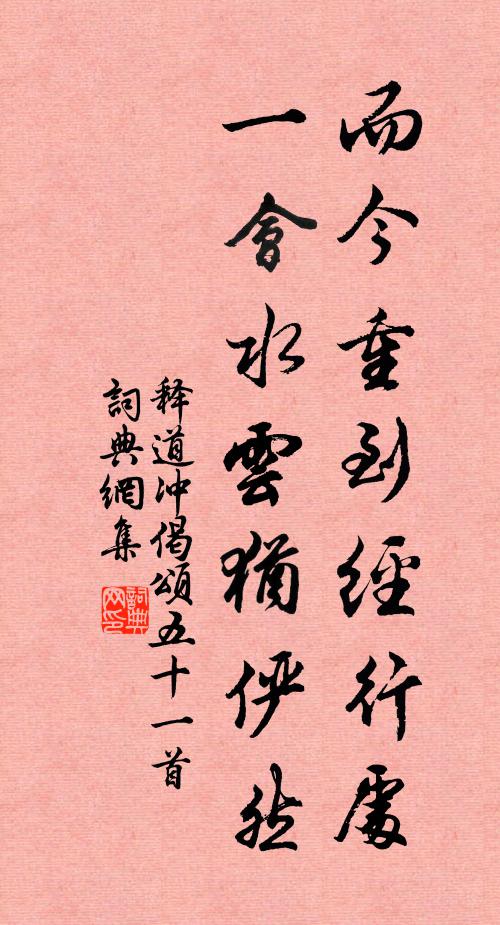 而今重到經行處
一會水雲猶俨然
释道冲偈頌五十一首
詞典網集
詞典
网印